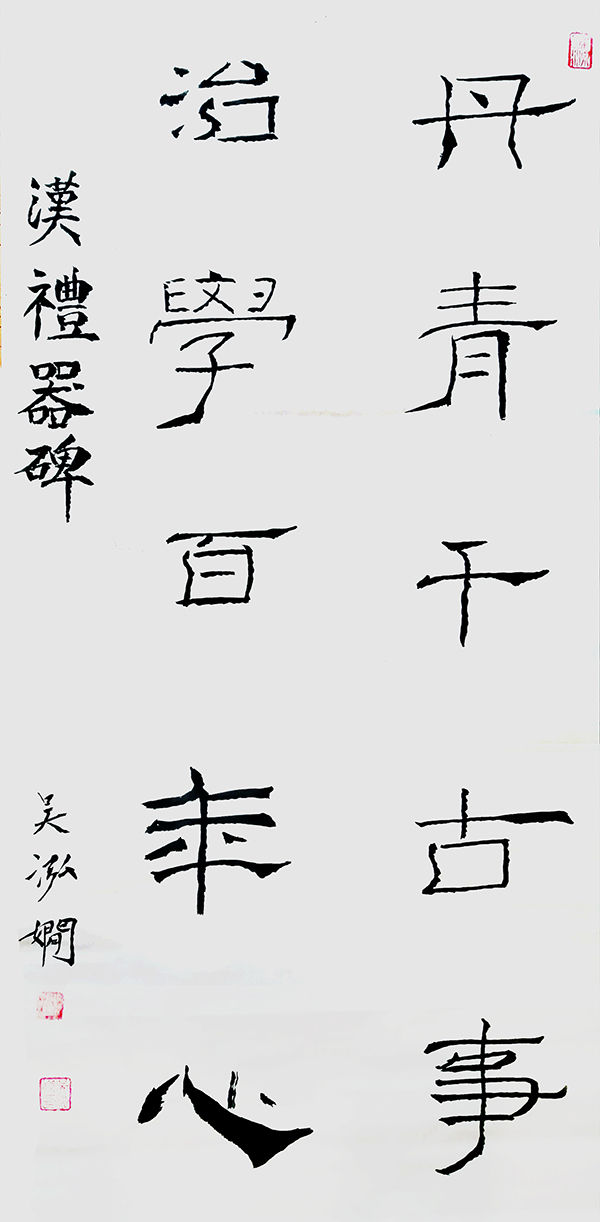 丹青千古事
治學百年心
漢禮器碑
吴泓嫺